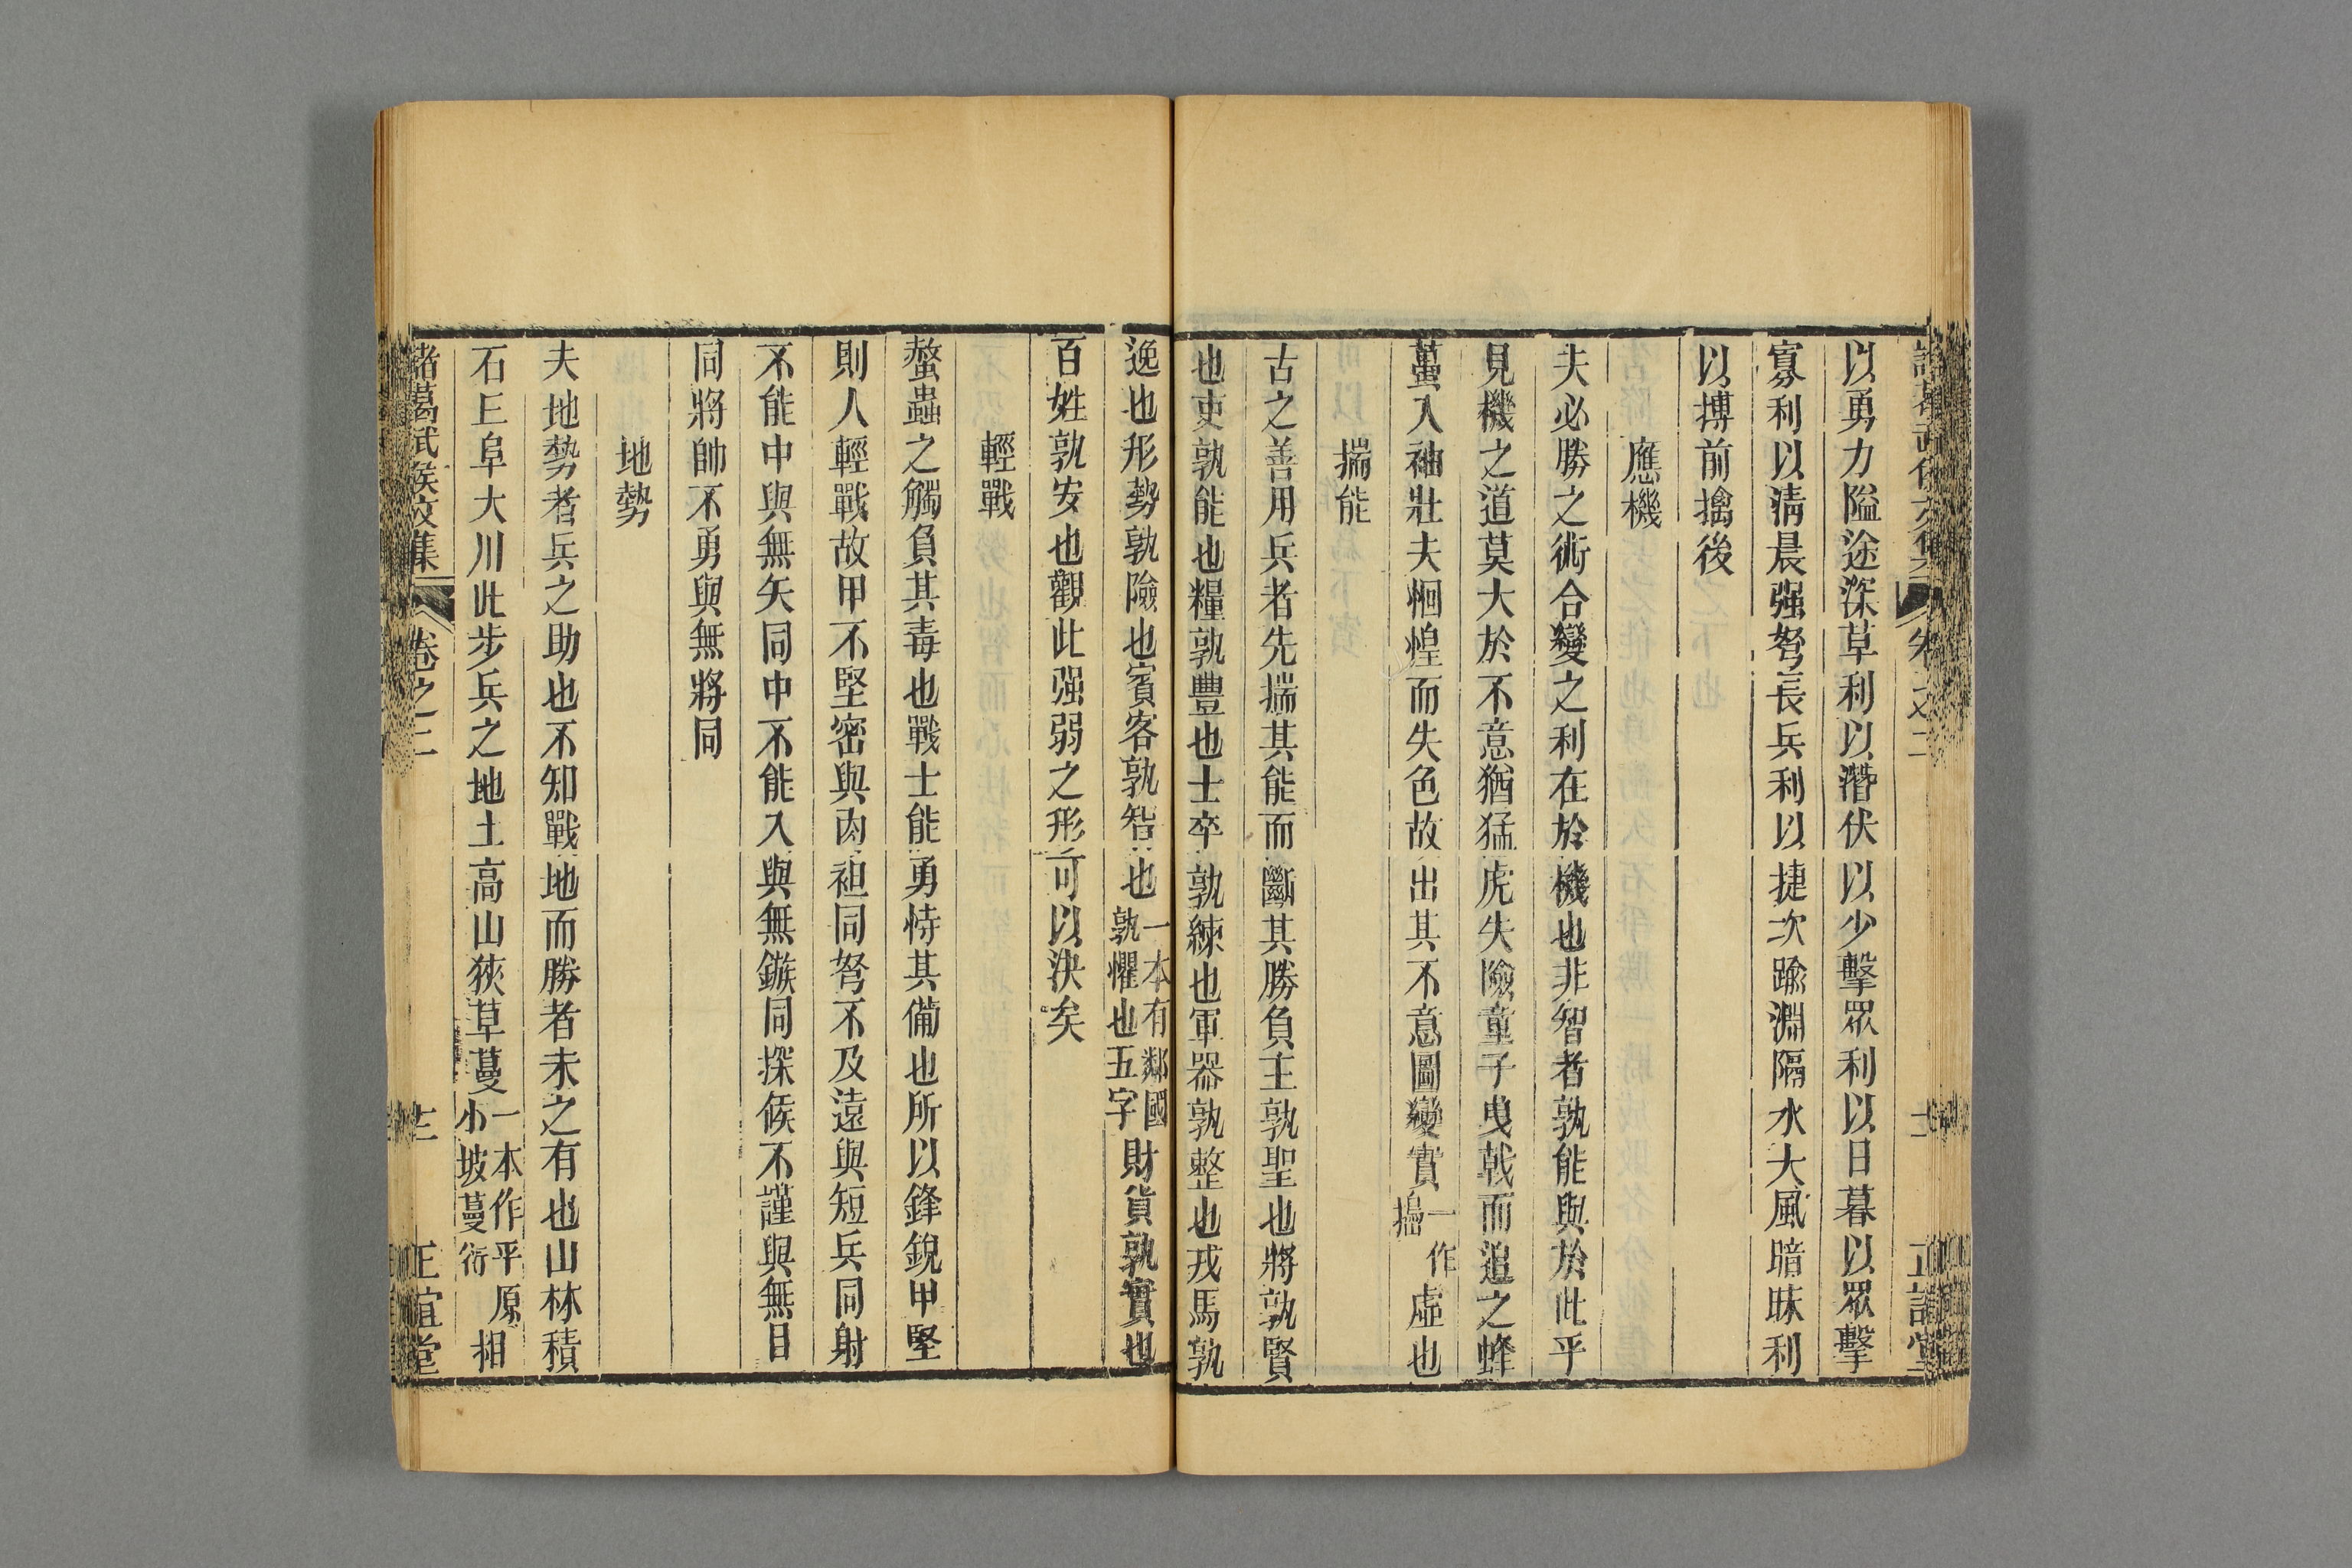 以勇力隘途深草利以潛伏以少擊眾利以日暮以眾擊
寡利以淸晨强弩長兵利以捷次踰淵隔水大風暗昧利
以搏前擒後
應機
夫必勝之術合變之利在於機也非智者孰能與於此乎
見機之道莫大於不意猶猛虎失險童子曳戟而追之蜂
蠆入袖壯夫恛惶而失色故出其不意圖變實一作虛也
揣能
古之善用兵者先揣其能而斷其勝負主孰聖也將孰賢
也吏孰能也糧孰豐也士卒孰練也軍器孰整也戎馬孰
逸也形勢孰險也賓客孰智也一本有鄰國孰懼也五字財貨孰實也
百姓孰安也觀此强弱之形可以決矣
輕戰
螫蟲之觸負其毒也戰士能勇恃其備也所以鋒銳甲堅
則人輕戰故甲不堅密與肉袒同弩不及遠與短兵同射
不能中與無矢同中不能入與無鏃同探候不謹與無目
同將帥不勇與無將同
地勢
夫地勢者兵之助也不知戰地而勝者未之有也山林積
石丘阜大川此步兵之地土高山狹草蔓一本作平原小坡蔓衍相
諸葛武侯文集 卷之二 正誼堂